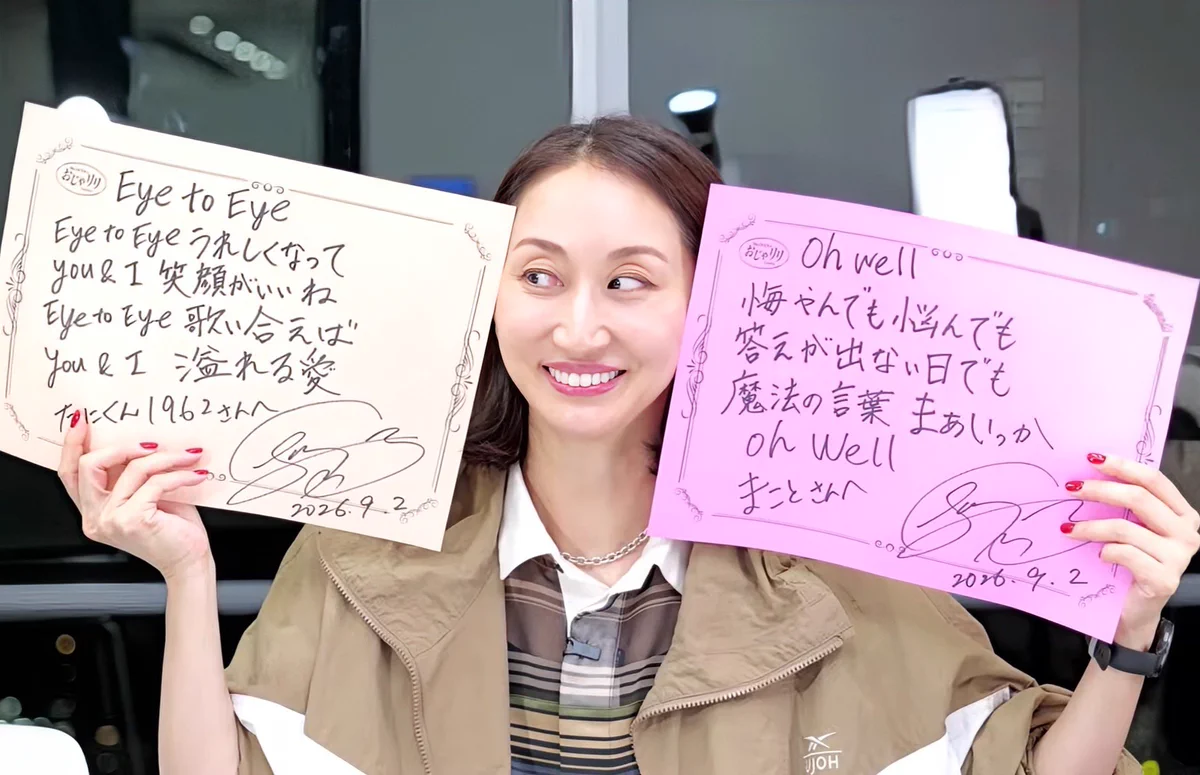 おじゃりリ
Eye to Eye
Eye to Eye うれしくなって
you & I 笑顔がいいね
Eye to Eye 歌い合えば
you & I 溢れる愛
たにくん1962さんへ
2026.9.2
おじゃりリ
Oh well
悔やんでも悩んでも
答えが出ない日でも
魔法の言葉 まぁいっか
oh Well
まことさんへ
2026.9.2
UJOH